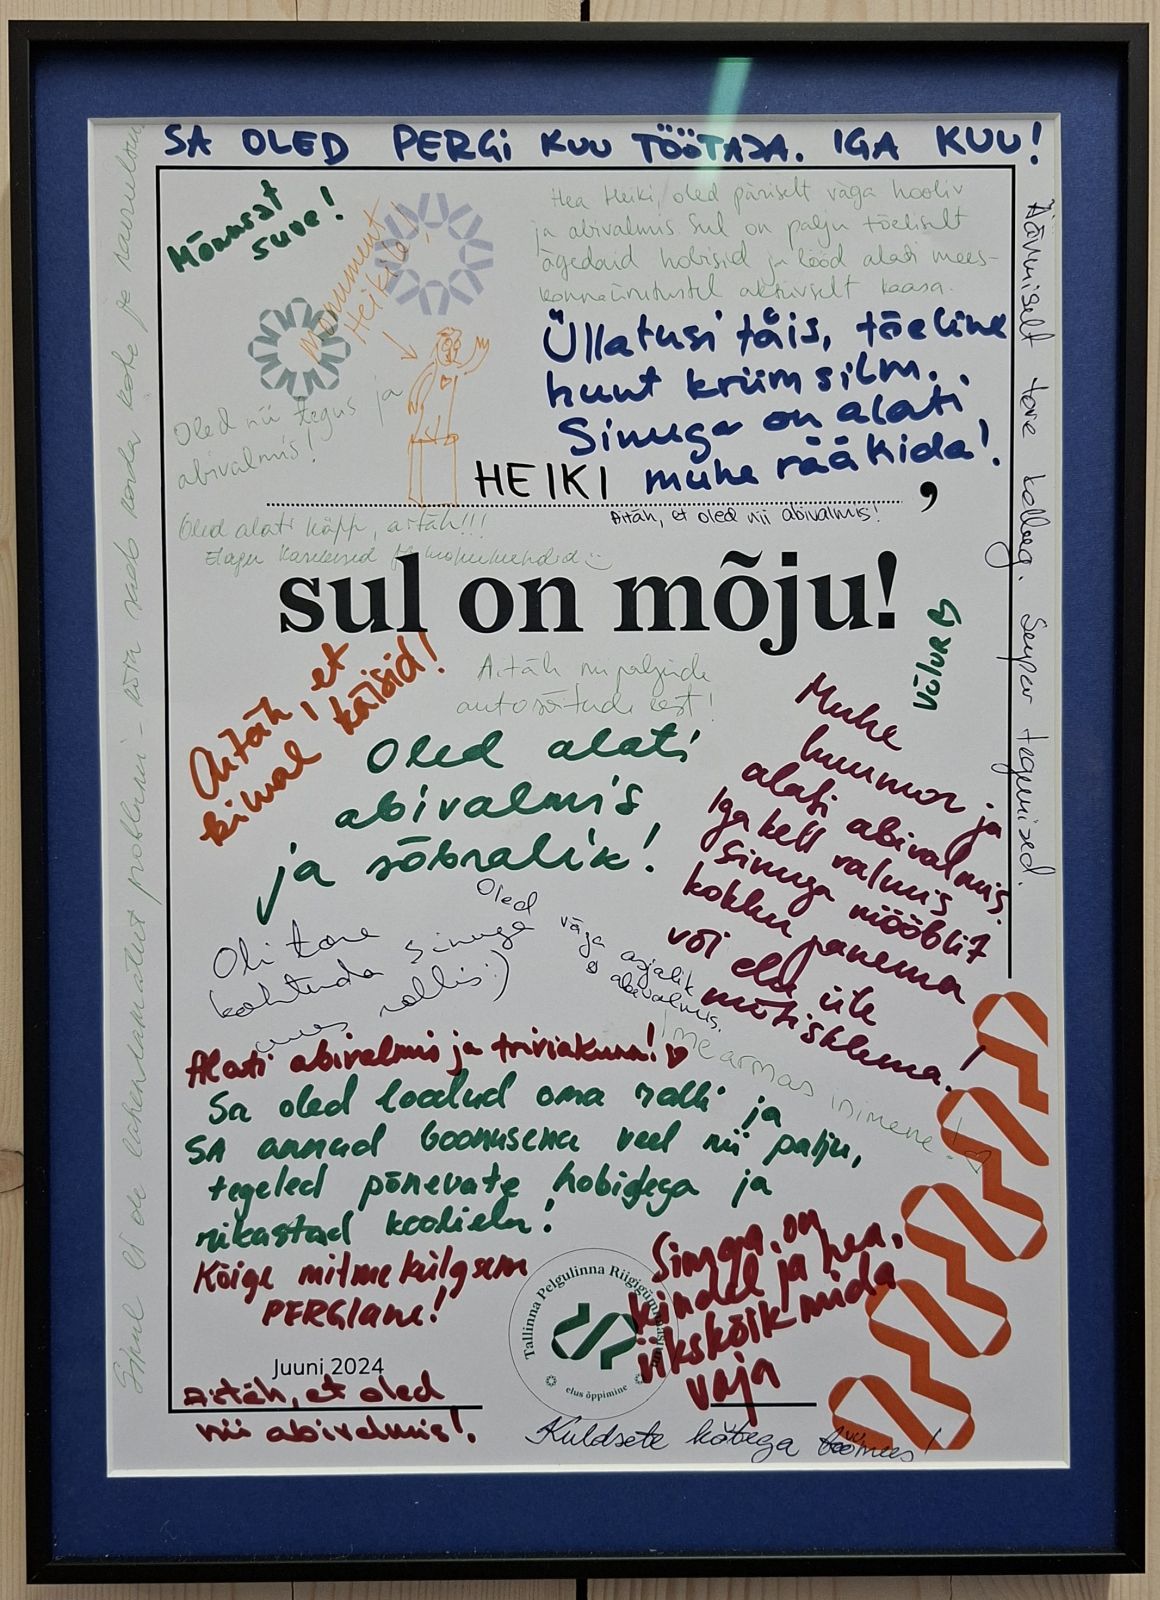 SA OLED PERGI KUU TÖÖTAJA. IGA KUU!
Mõnusat
suve!
Monument
Heikile!
Hea Heiki, oled päriselt väga hooliv
ja abivalmis. Sul on palju tõeliselt
ägedaid hobisid ja lööd alati mees-
konnaüritustel aktiivselt kaasa.
Üllatusi täis, tõeline
hunt kriimsilm.
Sinuga on alati
muhe rääkida!
Oled nii tegus ja
abivalmis!
HEIKI
,
Oled alati käpp, aitäh!!!
Aitäh, et oled nii abivalmis!
sul on mõju!
VÕLUR
Aitäh, et
kinal käisid!
Aitäh nii paljude
autosõitude eest!
Oled alati
abivalmis
ja sõbralik!
Muhe
huumor ja
alati abivalmis.
Iga kell valmis
sinuga mööblit
kokku panema
või elu üle
mõtisklema!
Oli tore
kohtuda sinuga
uues rollis:)
Oled väga asjalik
& abivalmis.
Imearmas inimene!
Alati abivalmis ja triviakunn!
Sa oled loodud oma rolli ja
SA annad boonusena veel nii palju,
tegeled põnevate hobidega ja
rikastad koolielu!
Kõige mitmekülgsem
PERGlane!
Sinuga on
kindel ja hea,
ükskõik mida
vaja
Tallinna Pelgulinna Riigigümnaasium
elus õppimine
Juuni 2024
Aitäh, et oled
nii abivalmis!
Kuldsete kätega töömees!
Äärmiselt tore kolleeg. Super tegemised.
Sinul ei ole lahendamatut probleemi -